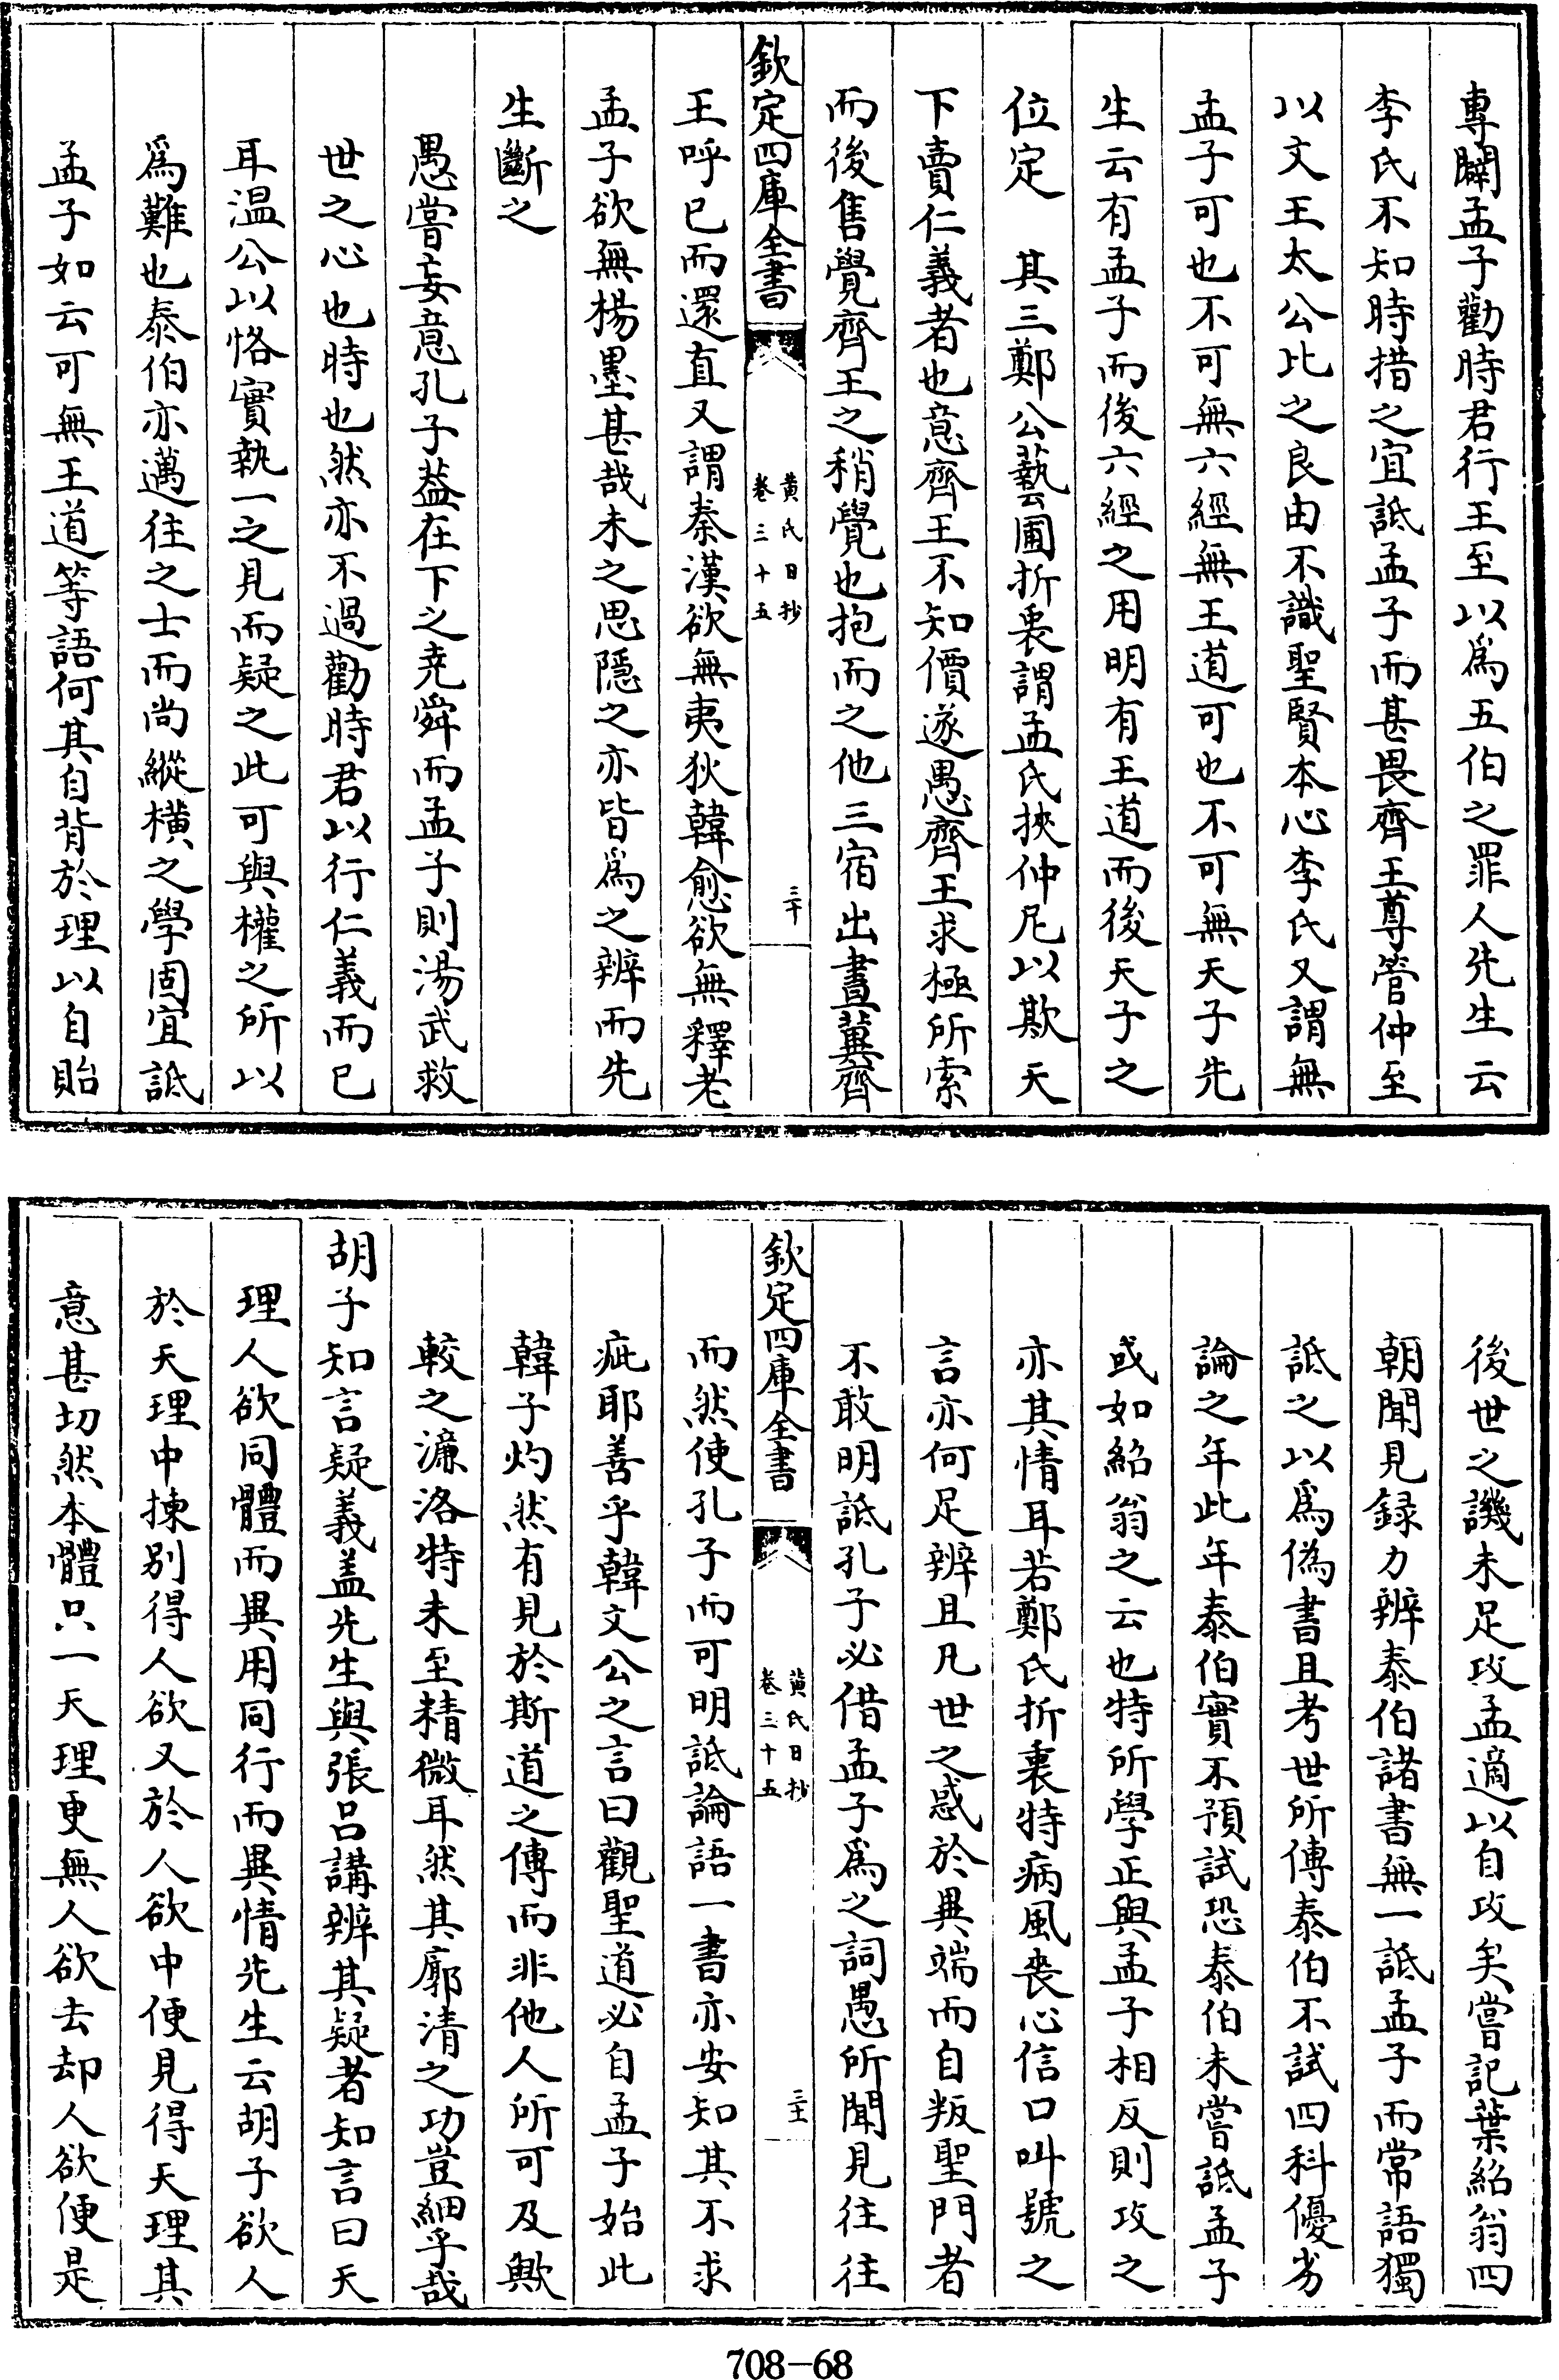 專闢孟子勸時君行王至以為五伯之罪人先生云
李氏不知時措之宜詆孟子而甚畏齊王尊管仲至
以文王太公比之良由不識聖賢本心李氏又謂無
孟子可也不可無六經無王道可也不可無天子先
生云有孟子而後六經之用明有王道而後天子之
位定　其三鄭公藝圃折衷謂孟氏挾仲尼以欺天
下賣仁義者也意齊王不知價遂愚齊王求極所索
而後售覺齊王之稍覺也抱而之他三宿出晝冀齊
欽定四庫全書
黄氏日抄
卷三十五
三十
王呼已而還直又謂秦漢欲無夷狄韓愈欲無釋老
孟子欲無楊墨甚哉未之思隱之亦皆為之辨而先
生斷之
愚嘗妄意孔子葢在下之堯舜而孟子則湯武救
世之心也時也然亦不過勸時君以行仁義而已
耳温公以恪實執一之見而疑之此可與權之所以
為難也泰伯亦邁往之士而尚縱橫之學固宜詆
孟子如云可無王道等語何其自背於理以自貽
後世之譏未足攻孟適以自攻矣嘗記葉紹翁四
朝聞見録力辨泰伯諸書無一詆孟子而常語獨
詆之以為偽書且考世所傳泰伯不試四科優劣
論之年此年泰伯實不預試恐泰伯未嘗詆孟子
或如紹翁之云也特所學正與孟子相反則攻之
亦其情耳若鄭氏折衷特病風喪心信口叫號之
言亦何足辨且凡世之惑於異端而自叛聖門者
不敢明詆孔子必借孟子為之詞愚所聞見往往
欽定四庫全書
黄氏日抄
卷三十五
三十一
而然使孔子而可明詆論語一書亦安知其不求
疵耶善乎韓文公之言曰觀聖道必自孟子始此
韓子灼然有見於斯道之傳而非他人所可及歟
較之濂洛特未至精微耳然其廓清之功豈細乎哉
胡子知言疑義蓋先生與張吕講辨其疑者知言曰天
理人欲同體而異用同行而異情先生云胡子欲人
於天理中揀别得人欲又於人欲中便見得天理其
意甚切然本體只一天理更無人欲去却人欲便是
708-68